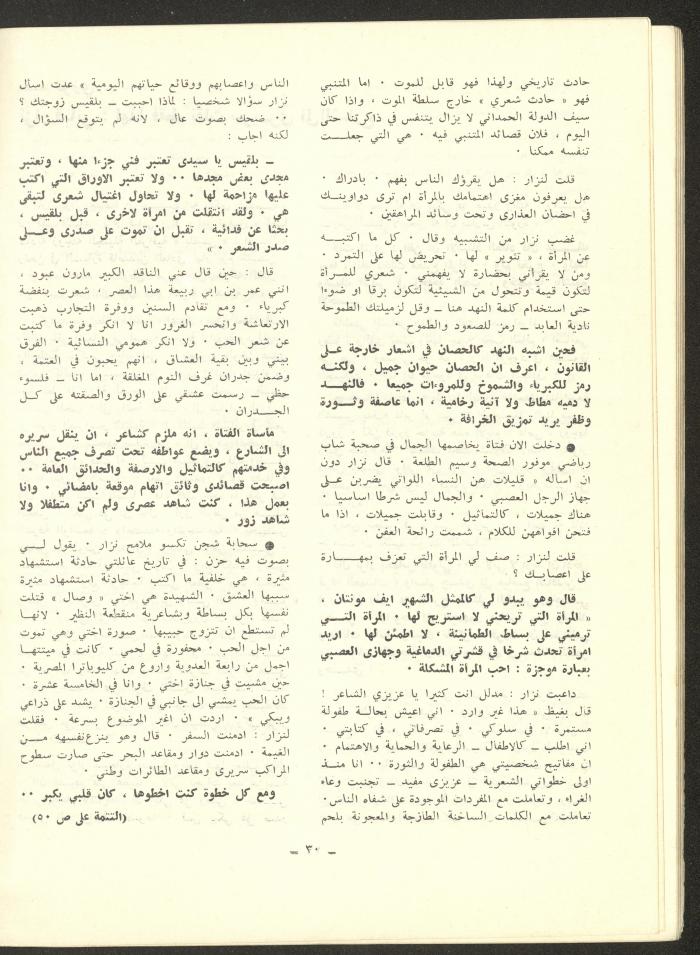 حادث تاريخي ولهذا فهو قابل للموت ٠ اما المتنبي
فهو « حادث شعري » خارج سلطة الموت ، واذا كان
سيف الدولة الحمداني لا يزال يتنفس في ذاكرتنا حتى
اليوم ، فلان قصائد المتنبي فيه ٠ هي التي جعلت
تنفسه ممكنا ٠
قلت لنزار : هل يقرؤك الناس بفهم ٠ بادراك ٠
هل يعرفون مغزى اهتمامك بالمرأة ام ترى دواوينك
في احضان العذارى وتحت وسائد المراهقين ٠
غضب نزار من التشبيه وقال ٠ كل ما اكتبه
عن المرأة ، « تنوير » لها ٠ تحريض لها على التمرد ٠
ومن لا يقرأني بحضارة لا يفهمني ٠ شعري للمرأة
لتكون قيمة وتتحول من الشيئية لتكون برقا او ضوءا
حتى استخدام كلمة النهد هنا ــ وقل لزميلتك الطموحة
نادية العابد ــ رمز للصعود والطموح ٠
فحين اشبه النهد كالحصان في اشعار خارجة على
القانون ، اعرف ان الحصان حيوان جميل ، ولكنه
رمز للكبرياء والشموخ وللمروءات جميعا ٠ فالنهد
لا دميه مطاط ولا آنية رخامية ، انما عاصفة وثورة
وظفر يريد تمزيق الخرافة ٠
● دخلت الان فتاة يخاصمها الجمال في صحبة شاب
رياضي موفور الصحة وسيم الطلعة ٠ قال نزار دون
ان اسأله « قليلات هن النساء اللواتي يضربن على
جهاز الرجل العصبي ٠ والجمال ليس شرطا اساسيا ٠
هناك جميلات ، كالتماثيل ٠ وقابلت جميلات ، اذا ما
فتحن افواههن للكلام ، شممت رائحة العفن ٠
قلت لنزار : صف لي المرأة التي تعزف بمهارة
على اعصابك ؟
قال وهو يبدو لي كالممثل الشهير ايف مونتان ،
« المرأة التي تريحني لا استريح لها ٠ المرأة التي
ترميني على بساط الطمأنينة ، لا اطمئن لها ٠ اريد
امرأة تحدث شرخا في قشرتي الدماغية وجهازى العصبي
بعبارة موجزة : احب المرأة المشكلة ٠
داعبت نزار : مدلل انت كثيرا يا عزيزي الشاعر !
قال بغيظ « هذا غير وارد ٠ اني اعيش بحالة طفولة
مستمرة ٠ في سلوكي ٠ في تصرفاتي ، في كتابتي ٠
اني اطلب ــ كالاطفال ــ الرعاية والحماية والاهتمام ٠
ان مفاتيح شخصيتي هي الطفولة والثورة ٠٠ انا منذ
اولى خطواتي الشعرية ــ عزيزى مفيد ــ تجنبت وعاء
الغراء ، وتعاملت مع المفردات الموجودة على شفاه الناس٠
تعاملت مع الكلمات الساخنة الطازجة والمعجونة بلحم
الناس واعصابهم ووقائع حياتهم اليومية » عدت اسأل
نزار سؤالا شخصيا : لماذا احببت ــ بلقيس زوجتك ؟
٠٠ ضحك بصوت عال ، لانه لم يتوقع السؤال ،
لكنه اجاب :
ــ بلقيس يا سيدى تعتبر فني جزءا منها ، وتعتبر
مجدى بعض مجدها ٠٠ ولا تعتبر الاوراق التي اكتب
عليها مزاحمة لها ٠ ولا تحاول اغتيال شعرى لتبقى
هي ٠ ولقد انتقلت من امرأة لاخرى ، قبل بلقيس ،
بحثا عن فدائية ، تقبل ان تموت على صدرى وعلى
صدر الشعر ٠ »
قال : حين قال عني الناقد الكبير مارون عبود ،
انني عمر بن ابي ربيعة هذا العصر ، شعرت بنفضة
كبرياء ٠ ومع تقادم السنين ووفرة التجارب ذهبت
الارتعاشة وانحسر الغرور انا لا انكر وفرة ما كتبت
عن شعر الحب ٠ ولا انكر همومي النسائية ٠ الفرق
بيني وبين بقية العشاق ، انهم يحبون في العتمة ،
وضمن جدران غرف النوم المغلقة ، اما انا ــ فلسوء
حظي ــ رسمت عشقي على الورق والصقته على كل
الجدران ٠
مأساة الفتاة ، انه ملزم كشاعر ، ان ينقل سريره
الى الشارع ، ويضع عواطفه تحت تصرف جميع الناس
وفي خدمتهم كالتماثيل والارصفة والحدائق العامة ٠٠
اصبحت قصائدى وثائق اتهام موقعة بامضائي ٠ وانا
بعمل هذا ، كنت شاهد عصرى ولم اكن متطفلا ولا
شاهد زور ٠
● سحابة شجن تكسو ملامح نزار ٠ يقول لي
بصوت فيه حزن : في تاريخ عائلتي حادثة استشهاد
مثيرة ، هي خلفية ما اكتب ٠ حادثة استشهاد مثيرة
سببها العشق ٠ الشهيدة هي اختي « وصال » قتلت
نفسها بكل بساطة وبشاعرية منقطعة النظير ٠ لانها
لم تستطع ان تتزوج حبيبها ٠ صورة اختي وهي تموت
من اجل الحب ٠ محفورة في لحمي ٠ كانت في ميتتها
اجمل من رابعة العدوية واروع من كليوباترا المصرية ٠
حين مشيت في جنازة اختي ٠ وانا في الخامسة عشرة ٠
كان الحب يمشي الى جانبي في الجنازة ٠ يشد على ذراعي
ويبكي » ٠ اردت ان اغير الموضوع بسرعة ٠ فقلت
لنزار : ادمنت السفر ٠ قال وهو ينزع نفسهه من
الغيمة ٠ ادمنت دوار ومقاعد البحر حتى صارت سطوح
المراكب سريرى ومقاعد الطائرات وطني ٠
ومع كل خطوة كنت اخطوها ، كان قلبي يكبر ٠٠
(التتمة على ص ٥٠)
ــ ٣٠ ــ